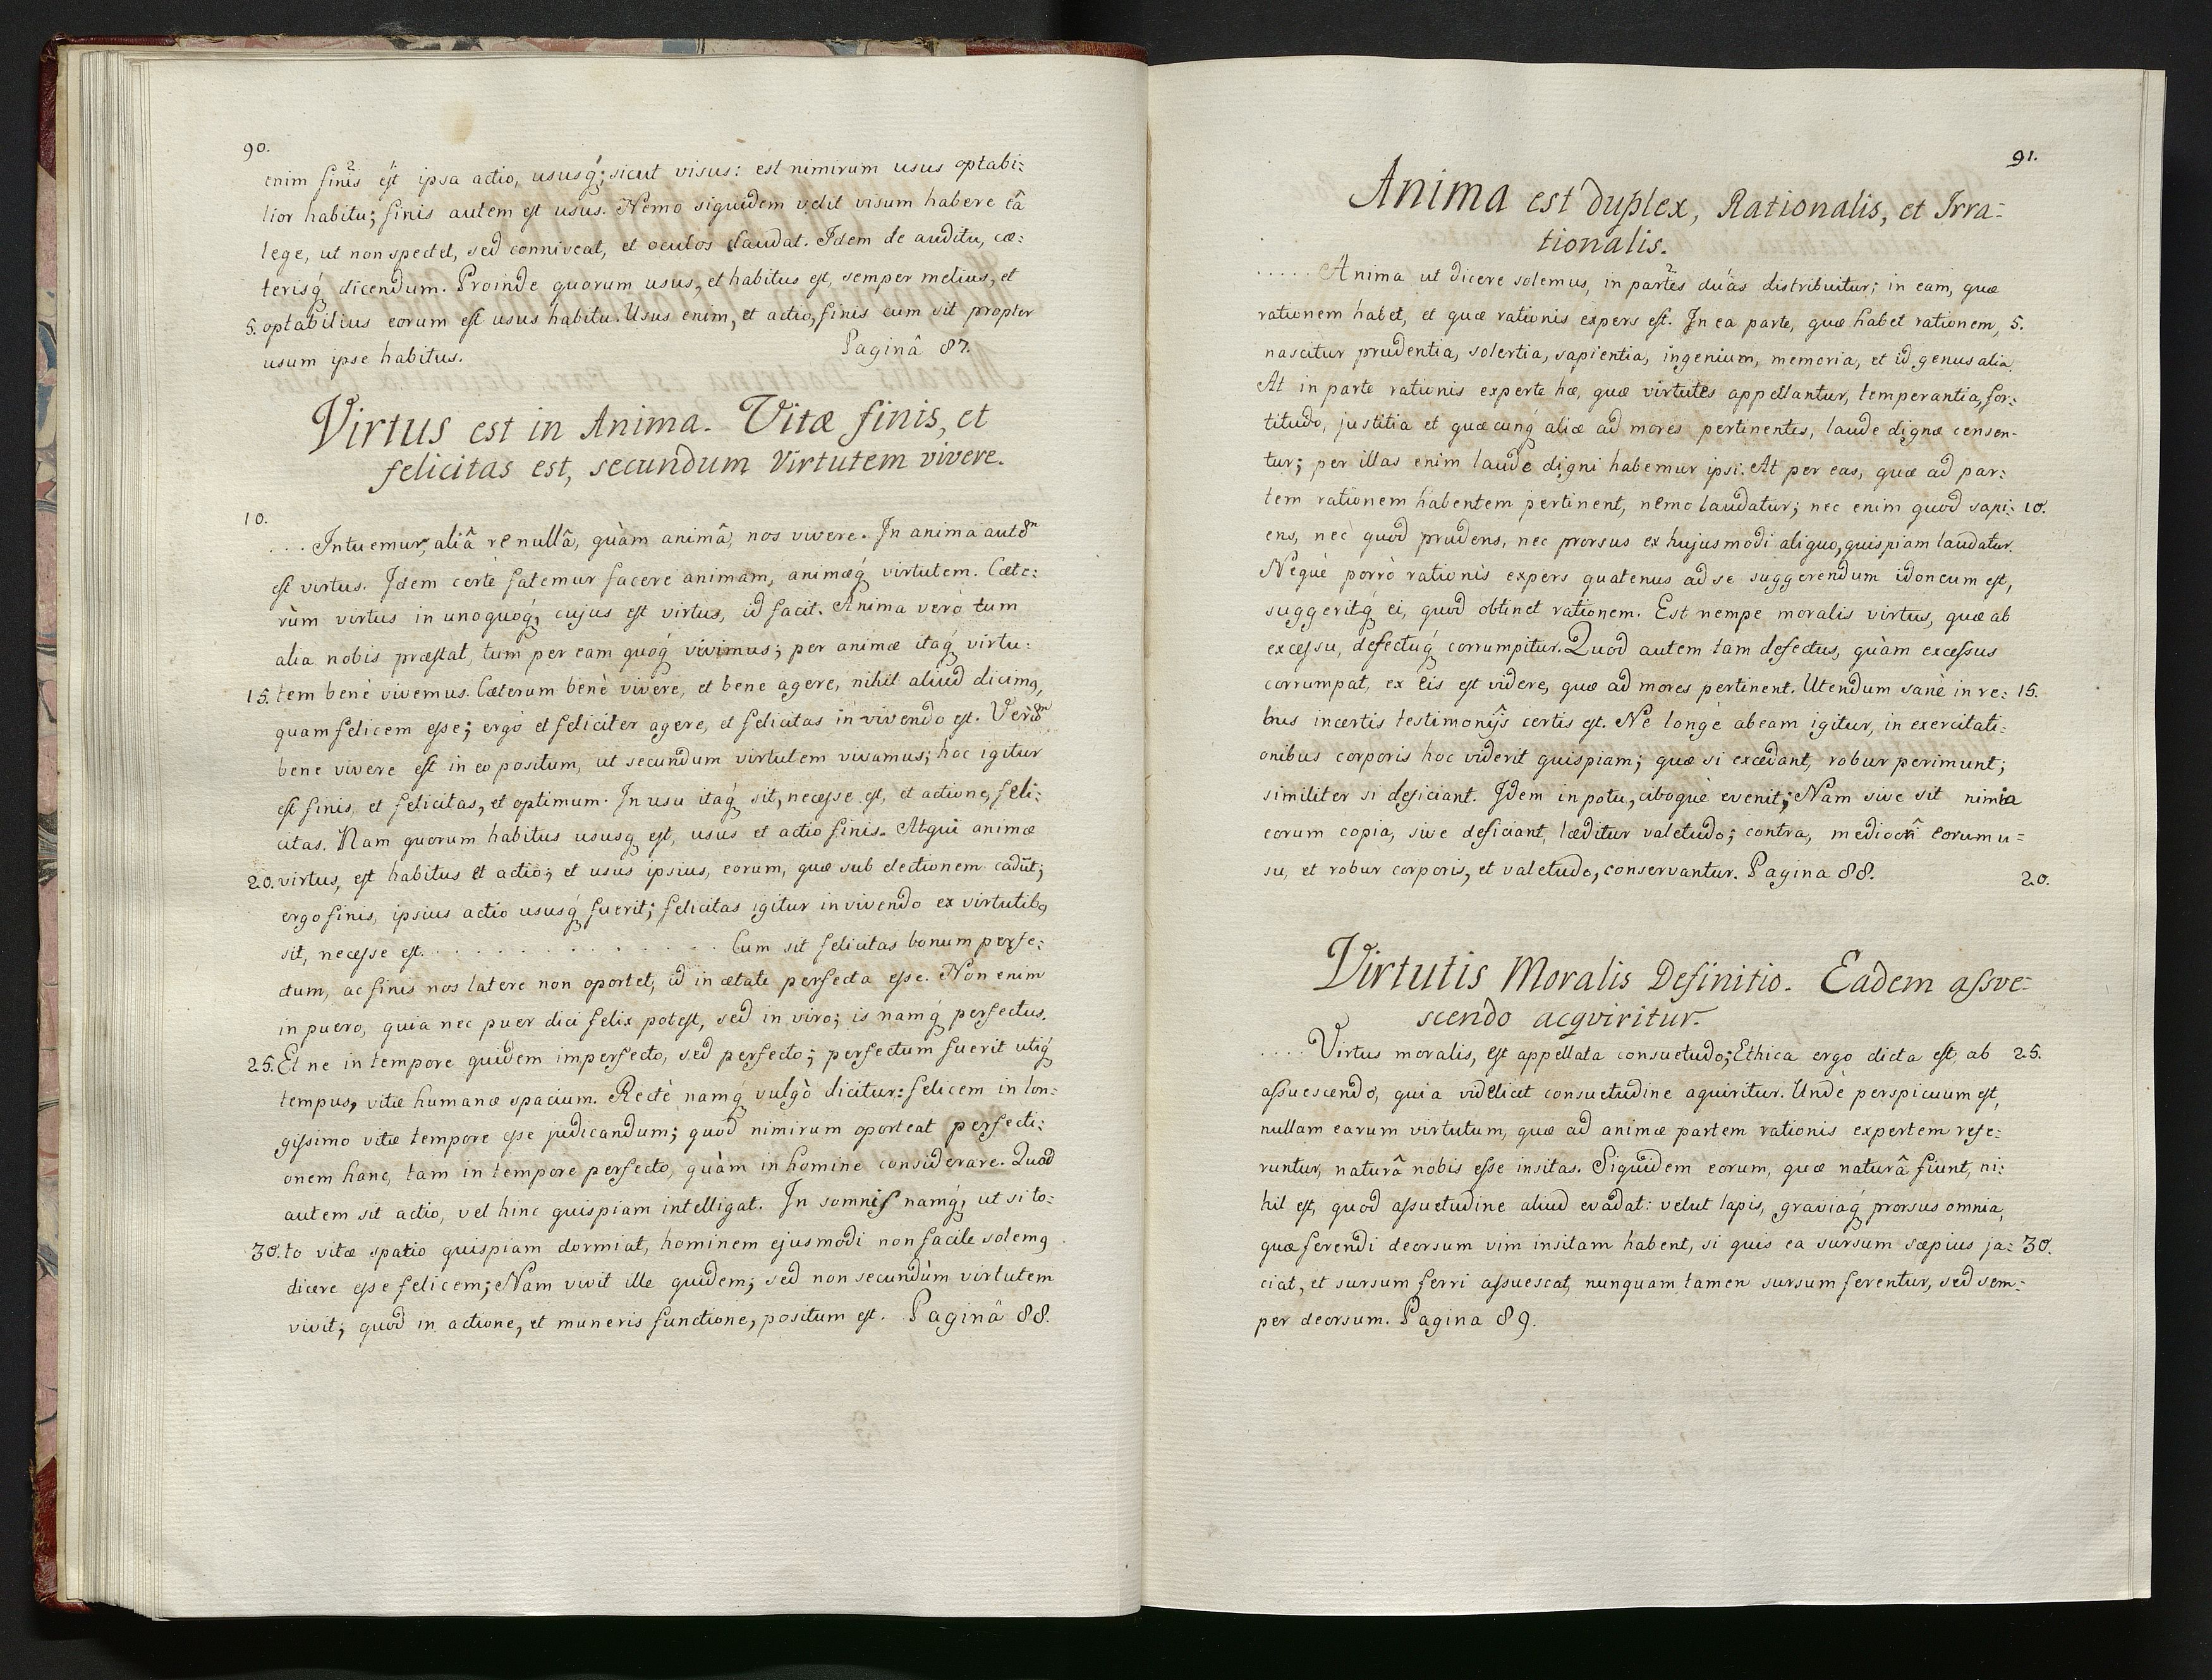 90.
enim finis est ipsa actio, ususq́; sicut visus: est nimirum usus optabi:
lior habitu; finis autem est usus. Nemo siquidem velit visum habere eâ
lege, ut non spectet, sed conniveat, et oculos claudat. Idem de auditu, cæ:
terisq́ dicendum. Proinde quorum usus, et habitus est, semper melius, et
5. optabilius eorum est usus habitu. Usus enim, et actio, finis cum sit propter
usum ipse habitus. Paginâ 87.
Virtus est in Anima. Vitæ finis, et
felicitas est, secundum Virtutem vivere.
10.
... Intuemur, aliâ re nullâ, quàm animâ, nos vivere. In anima aut8ͫ
est virtus. Idem certè fatemur facere animam, animæq́ virtutem. Cæte:
rùm virtus in unoquoq́, cujus est virtus, id facit. Anima verò tum
alia nobis præstat, tum per eam quoq́ vivimus; per animæ itaq́ virtu:
15. tem benè vivemus. Cæterum benè vivere, et bene agere, nihil aliud dicimꝰ,
quam felicem esse; ergò et feliciter agere, et felicitas in vivendo est. Verù8ͫ
bene vivere est in eo positum, ut secundum virtutem vivamus; hoc igitur
est finis, et felicitas, et optimum. In usu itaq́ sit, necesse est, et actione, feli:
citas. Nam quorum habitus ususq est, usus et actio finis. Atqui animæ
20. virtus, est habitus et actio; et usus ipsius, eorum, quæ sub electionem cadūt;
ergo finis, ipsius actio ususq́ fuerit; felicitas igitur in vivendo ex virtutibꝰ
sit, necesse est. . . . . . . . . . . . . . . Cum sit felicitas bonum perfe:
ctum, ac finis nos latere non oportet, id in ætate perfecta esse. Non enim
in puero, quia nec puer dici felix potest, sed in viro; is namq́ perfectus.
25. Et ne in tempore quidem imperfecto, sed perfecto; perfectum fuerit utiq́
tempus, vitæ humanæ spacium. Rectè namq́ vulgò dicitur: felicem in lon:
gissimo vitæ tempore esse judicandum; quod nimirum oporteat perfecti:
onem hanc, tam in tempore perfecto, quàm in homine considerare. Quod
autem sit actio, vel hinc quispiam intelligat. In somnis namq́, ut si to:
30. to vitæ spatio quispiam dormiat, hominem ejusmodi non facile solemꝰ
dicere esse felicem; Nam vivit ille quidem; sed non secundùm virtutem
vivit; quod in actione, et muneris functione, positum est. Paginâ 88.
91.
Anima est duplex, Rationalis, et Irra:
tionalis.
..... Anima ut dicere solemus, in partes duas distribuitur; in eam, quæ
rationem habet, et quæ rationis expers est. In ea parte, quæ habet rationem, 5.
nascitur prudentia, solertia, sapientia, ingenium, memoria, et id genus alia.
At in parte rationis experte hæ, quæ virtutes appellantur, temperantia, for:
titudo, justitia et quæcunq́ aliæ ad mores pertinentes, laude dignæ censen-
tur; per illas enim laude digni habemur ipsi. At per eas, quæ ad par:
tem rationem habentem pertinent, nemo laudatur; nec enim quod sapi: 10.
ens, nec quod prudens, nec prorsus ex hujusmodi aliquo, quispiam laudatur.
Nequè porrò rationis expers quatenus ad se suggerendum idoneum est,
suggeritq́ ei, quod obtinet rationem. Est nempe moralis virtus, quæ ab
excessu, defectuq́ corrumpitur. Quod autem tam defectus, quàm excessus
corrumpat, ex eis est videre, quæ ad mores pertinent. Utendum sanè in re: 15.
bus incertis testimonijs certis est. Ne longè abeam igitur, in exercitati:
onibus corporis hoc viderit quispiam; quæ si excedant, robur perimunt;
similiter si deficiant. Idem in potu, ciboquè evenit; Nam sive sit nimia
eorum copia, sive deficiant, læditur valetudo; contra, mediocri eorum u=
su, et robur corporis, et valetudo, conservantur. Pagina 88. 20.
Virtutis Moralis Definitio. Eadem assve-
scendo acqviritur.
.... Virtus moralis, est appellata consuetudo; Ethica ergo dicta est, ab 25.
assuescendo, quia videlicet consuetudine aquiritur. Undè perspicuum est,
nullam earum virtutum, quæ ad animæ partem rationis expertem refe:
runtur, naturâ nobis esse insitas. Siquidem eorum, quæ naturâ fiunt, ni:
hil est, quod assuetudine aliud evadat: velut lapis, graviaq́ prorsus omnia,
quæ ferendi deorsum vim insitam habent, si quis ea sursum sæpius ja: 30.
ciat, et sursum ferri assuescat, nunquam tamen sursum ferentur, sed sem-
per deorsum. Pagina 89.